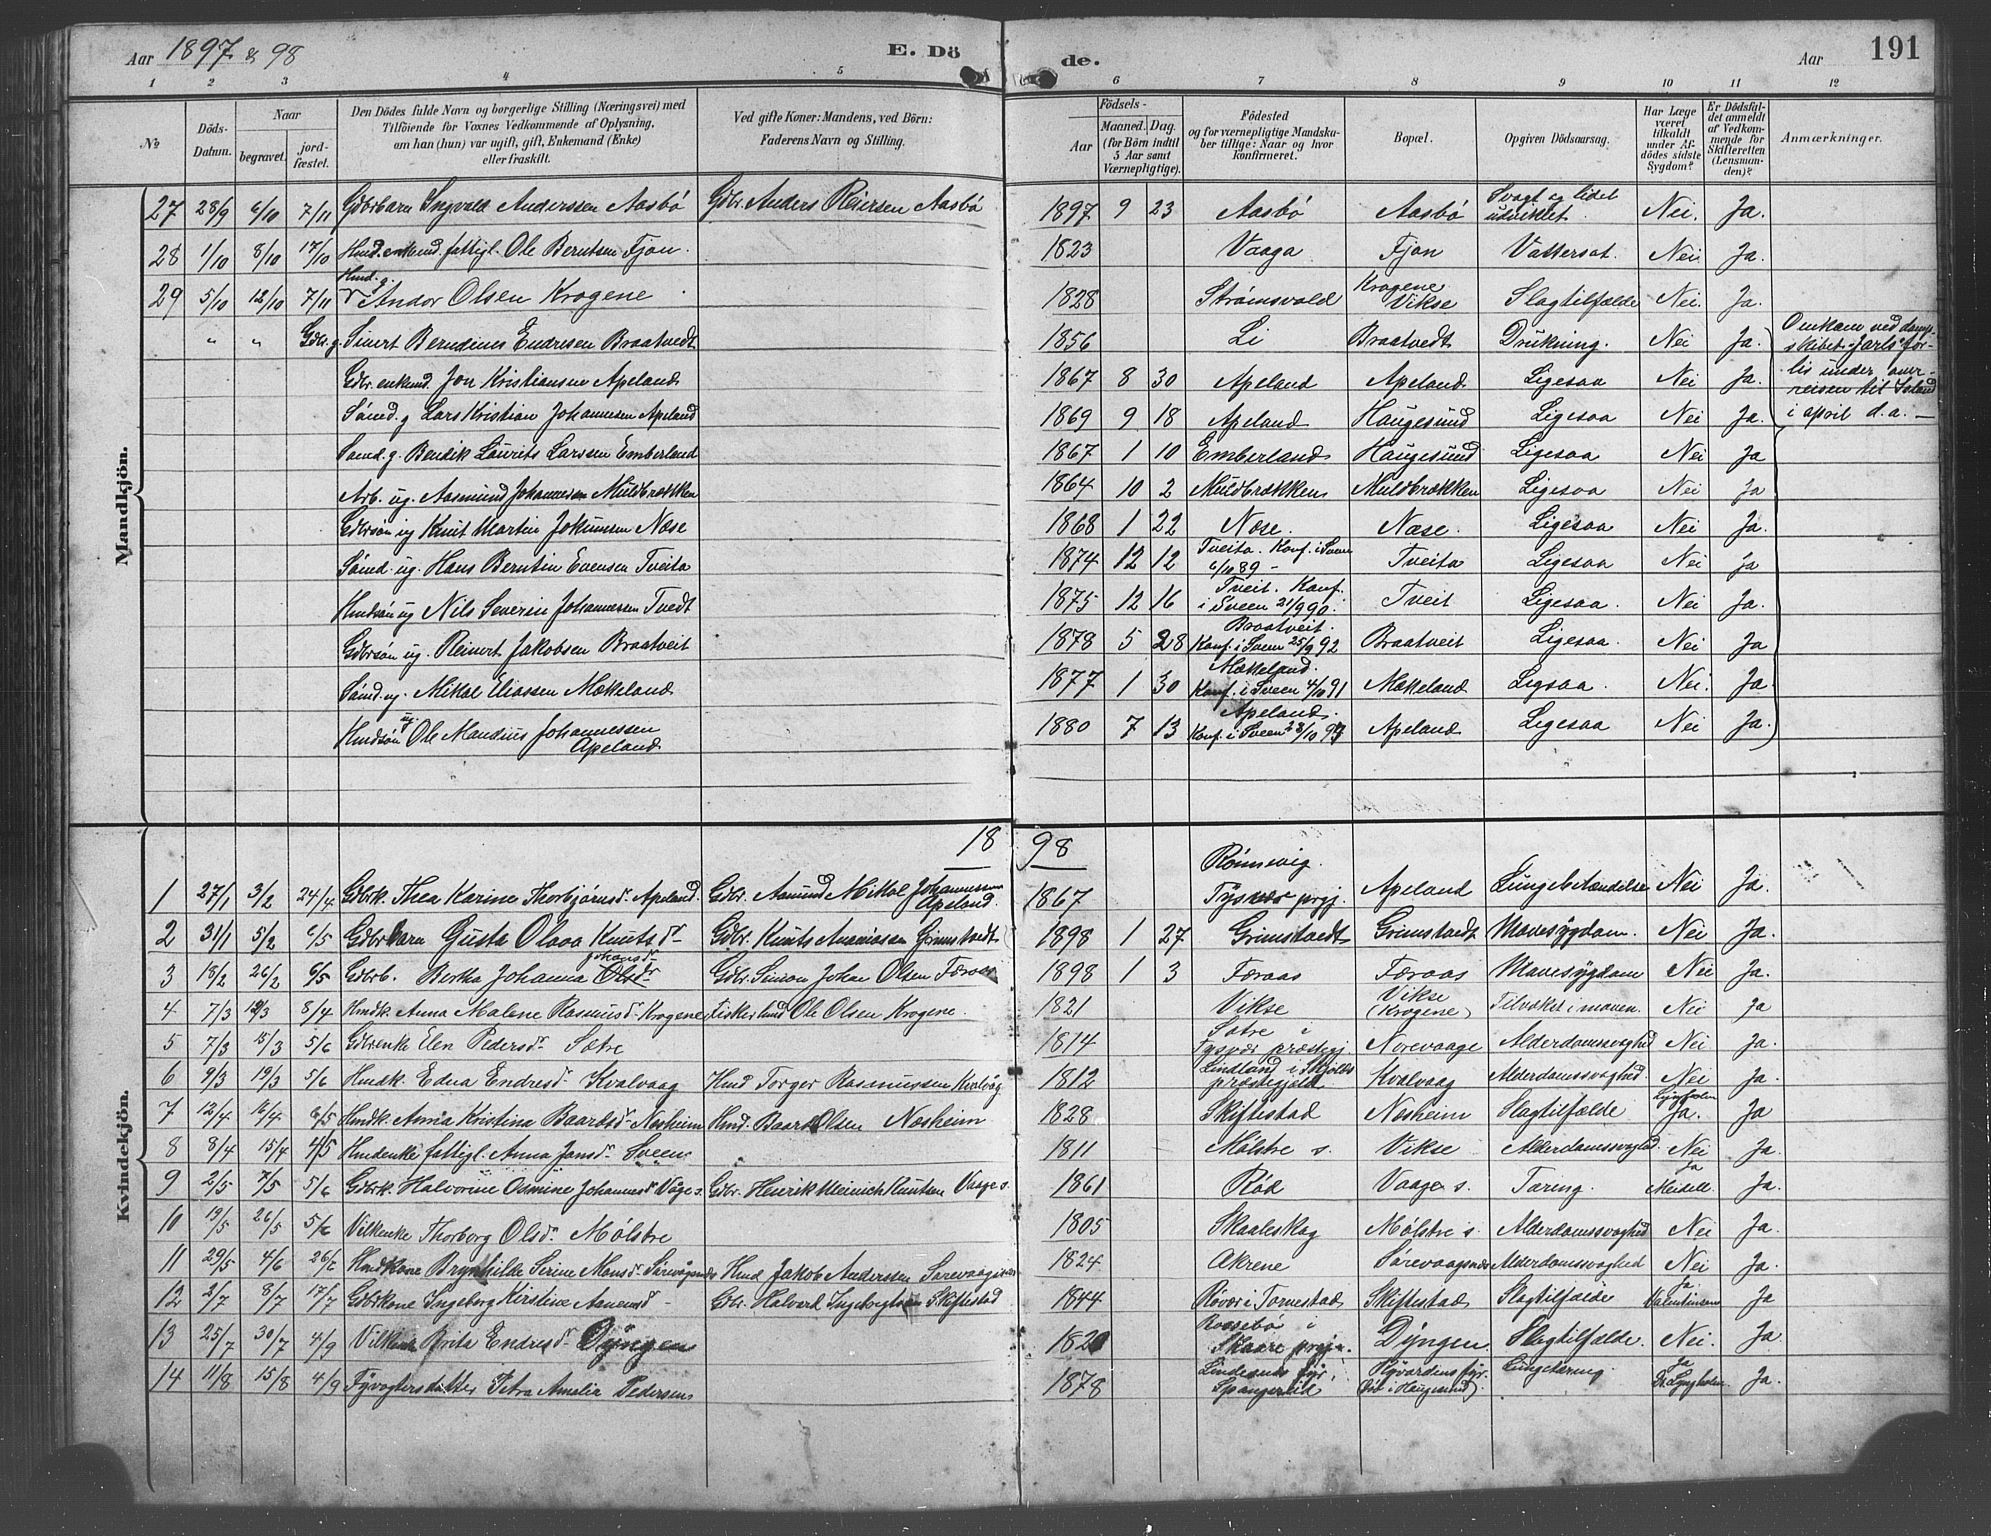 Aar 1897 & 98 E. Dö de. Aar 191
1 2 3 4 5 6 7 8 9 10 11 12
№ Döds-Datum. Naar begravet. jordfæstet. Den Dödes fulde Navn og borgerlige Stilling (Næringsvei) med Tilföiende for Voxnes Vedkommende af Oplysning, om han (hun) var ugift, gift, Enkemand (Enke) eller fraskilt. Ved gifte Koner: Mandens, ved Börn: Faderens Navn og Stilling. Födsels- Aar Maaned. Dag. (for Börn indtil 5 Aar samt Værnepligtige). Födested og for værnepligtige Mandskaber tillige: Naar og hvor konfirmeret. Bopæl. Opgiven Dödsaarsag. Har Læge været tilkaldt under Afdödes sidste Sygdom? Er Dödsfaldet anmeldt af Vedkommende for Skifteretten (Lensmanden)? Anmærkninger.
Mandkjön.
27 28/9 6/10 7/11 Gdbrbarn Ingvald Anderssen Aasbö Gdbr. Anders Reiersen Aasbö 1897 9 23 Aasbö Aasbö Svagt og lidet udviklet. Nei. Ja.
28 1/10 8/10 17/10 Hmd. enkmd. fattigl. Ole Berntsen Fjon. 1823 Vaaga Fjon Vattersot. Nei Ja.
29 5/10 12/10 7/11 Hmd. g. Andor Olsen Krogene 1828 Strömsvold Krogene Vikse Slagtilfælde Nei. Ja.
" " Gdbr. g. Sivert Berndines Endresen Braatvedt 1856 Li Braatvedt Drukning. Nei Ja. Omkom ved dampskibet "Jarls" forlis under overreisen til Island i april d.a.
Gdbr. enkmd. Jon Kristiansen Apeland 1867 8 30 Apeland Apeland Ligesaa Nei Ja.
Sömd. g. Lars Kristian Johannesen Apeland 1869 9 18 Apeland Haugesund Ligesaa Nei Ja.
Sömd. g. Bendik Laurits Larsen Emberland 1867 1 10 Emberland Haugesund Ligesaa Nei Ja
Arb. ug. Aasmund Johannesen Muldbrækken 1864 10 2 Muldbrækken Muldbrækken Ligesaa Nei Ja
Gdbrsön ug Knut Martin Jokumsen Næse 1868 1 22 Næse. Næse. Ligesaa Nei Ja.
Sömd. ug. Hans Berntin Evensen Tveita 1874 12 12 Tveita. Konf. i Sveen 6/10 89 Tveita Ligesaa Nei Ja
Hmdsön ug Nils Severin Johannessen Tvedt 1875 12 16 Tveit. Konf. i Sveen 21/9 90. Tveit Ligesaa. Nei Ja.
Gdbrsön ug. Reinert Jakobsen Braatveit 1878 5 28 Braatveit. Konf. i Sveen 25/9 92 Braatveit Ligesaa. Nei Ja
Sömd. ug. Mikal Eliassen Mækeland 1877 1 30 Mækeland. Konf. i Sveen 4/10 91 Mækeland Ligsaa. Nei. Ja.
Hmdsön ug. Ole Mandius Johannessen Apeland 1880 7 13 Apeland. Konf. i Sveen Apeland Ligesaa Nei Ja.
Kvindekjön.
18 98
1 27/1 3/2 24/4 Gdbrk. Thea Karine Thorbjörnsd. Apeland. Gdbr. Aamund Mikal Johannessen Apeland. 1867 Rönnevig. Tysvær prgj. Apeland Lungebetændelse Nei Ja.
2 31/1 5/2 6/5 Gdbrbarn Gusta Olava Knutsdr Gdbr. Knuts Ananiasen Grimstvedt 1898 1 27 Grimstvedt Grimstvedt Mavesygdom. Nei Ja.
3 18/2 26/2 6/5 Gdbrb. Bertha Johanna Johansd. Olsdr Gdbr. Simon Johan Olsen Færaas 1898 1 3 Færaas Færaas Mavesygdom Nei Ja.
4 7/3 12/3 8/4 Hmdk. Anna Malene Rasmusd. Krogene Fisker hmd Ole Olsen Krogene. 1821 Vikse Vikse (Krogene) i maven. Nei Ja
5 7/3 15/3 5/6 Gdbrenke Elen Pedersdr. Sætre 1814 Sætre i Tysvær præstegj. Norevaage Alderdomssvaghed Nei Ja.
6 9/3 19/3 5/6 Hmdk. Edna Endresdr. Kvalvaag Hmd Torger Rasmussen Kvalvåg 1812 Lindland i Skjolds præstegjeld Kvalvaag Alderdomssvaghed. Nei Ja.
7 12/4 16/4 6/5 Hmdk. Anna Kristina Baardsd. Nesheim Hmd. Baard Olsen Nesheim 1828 Skiftestad Nesheim Slagtilfælde Lyngholm Ja. Ja
8 8/4 15/4 4/5 Hmdenke fattigl. Anna Jansdr. Sveen 1811 Mölstre s. Vikse Alderdomssvaghed. Nei Ja.
9 2/5 7/5 5/6 Gdbrk. Halvorine Osmine Johannesd. Våge s. Gdbr. Henrik Meinich Knutsen Vaage s. 1861 Röd Vaage s. Tæring. Ja Meidell. Ja.
10 19/5 26/5 5/6 Vilkenke Thorborg Olsdr. Mölstre 1805 Skaaleskog Mölstre s. Alderdomssvaghed Nei Ja.
11 29/5 4/6 26/6 Hmdkone Brynhilde Serine Monsd. Sörevågen Hmd Jakob Anderssen Sørevaagen 1824 Åkrene Sørevaagen Alderdomssvaghed Nei Ja.
12 2/7 8/7 17/7 Gdbrkone Ingeborg Kirstine Aanensd - Gdbr. Halvard Ingebrigtsen Skiftestad 1844 Rövær i Torvestad Skiftestad Slagtilfælde Ja Valentinsen Ja
13 25/7 30/7 4/9 Vilkenke Brita Endresdr. Dyngen 1820 Rossebö i Skaare prgj. Dyngen Slagtilfælde. Nei. Ja
14 11/8 15/8 4/9 Fyrvogtersdatter Petra Amalia Pedersen 1878 Lindesnes fyr, Spangereid Ryvardens fyr. (Död i Haugesund). Lungetæring. Ja Dr. Lyngholm. Ja.